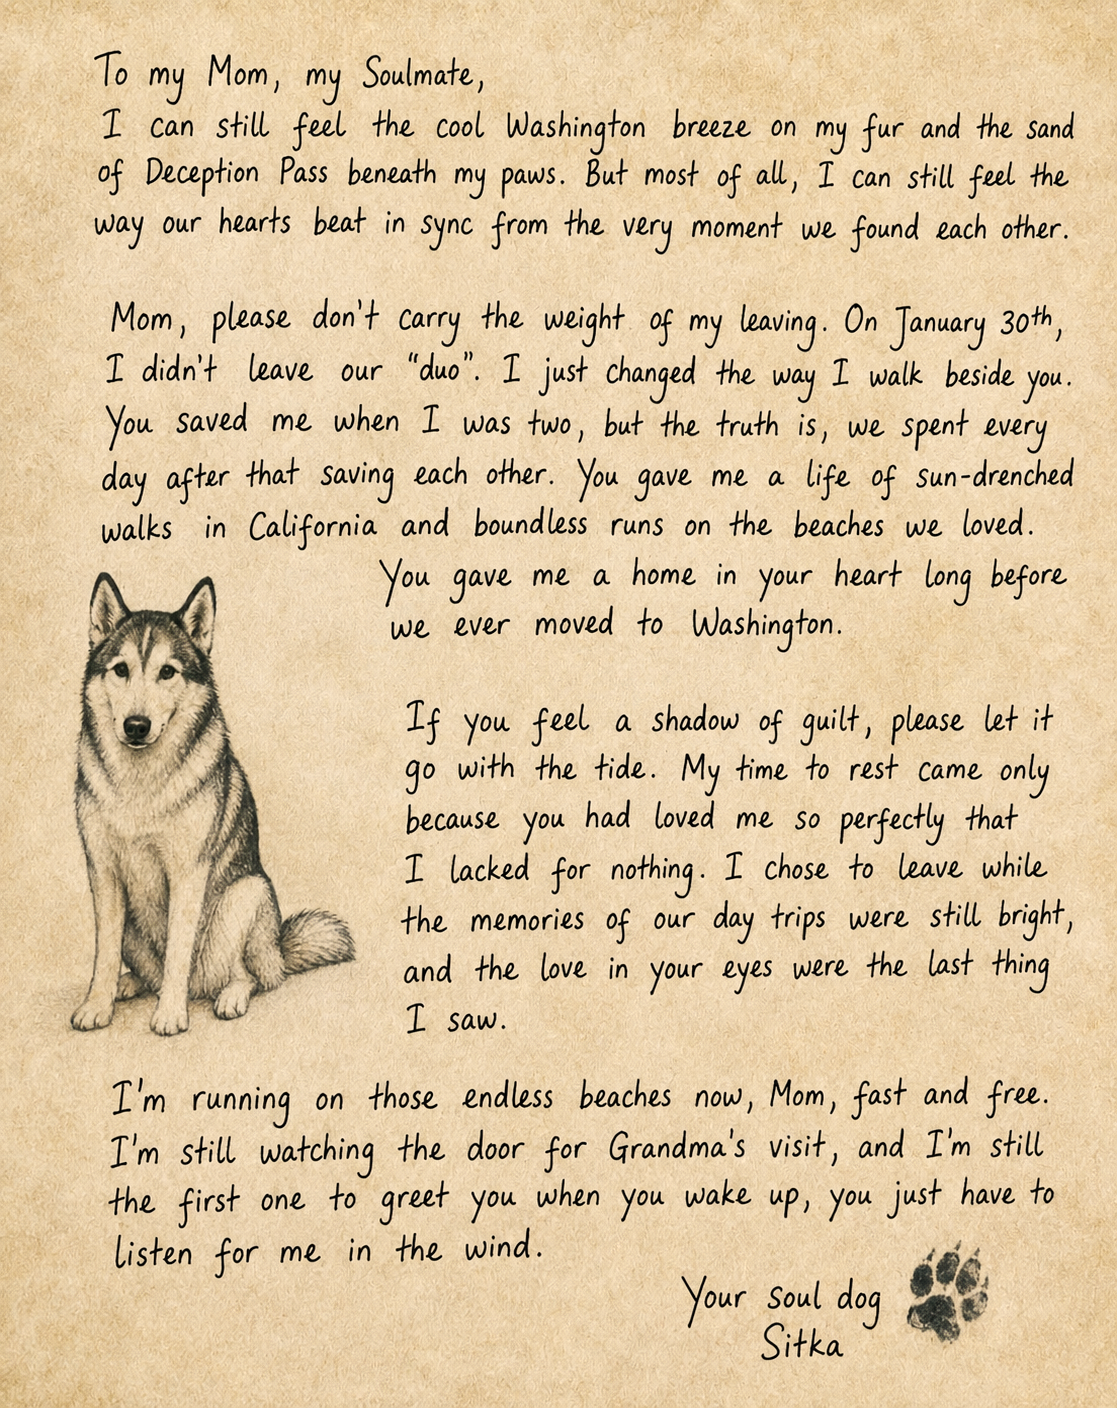 To my Mom, my Soulmate,
I can still feel the cool Washington breeze on my fur and the sand
of Deception Pass beneath my paws. But most of all, I can still feel the
way our hearts beat in sync from the very moment we found each other.
Mom, please don't carry the weight of my leaving. On January 30th,
I didn't leave our "duo". I just changed the way I walk beside you.
You saved me when I was two, but the truth is, we spent every
day after that saving each other. You gave me a life of sun-drenched
walks in California and boundless runs on the beaches we loved.
You gave me a home in your heart long before
we ever moved to Washington.
If you feel a shadow of guilt, please let it
go with the tide. My time to rest came only
because you had loved me so perfectly that
I lacked for nothing. I chose to leave while
the memories of our day trips were still bright,
and the love in your eyes were the last thing
I saw.
I'm running on those endless beaches now, Mom, fast and free.
I'm still watching the door for Grandma's visit, and I'm still
the first one to greet you when you wake up, you just have to
listen for me in the wind.
Your soul dog
Sitka